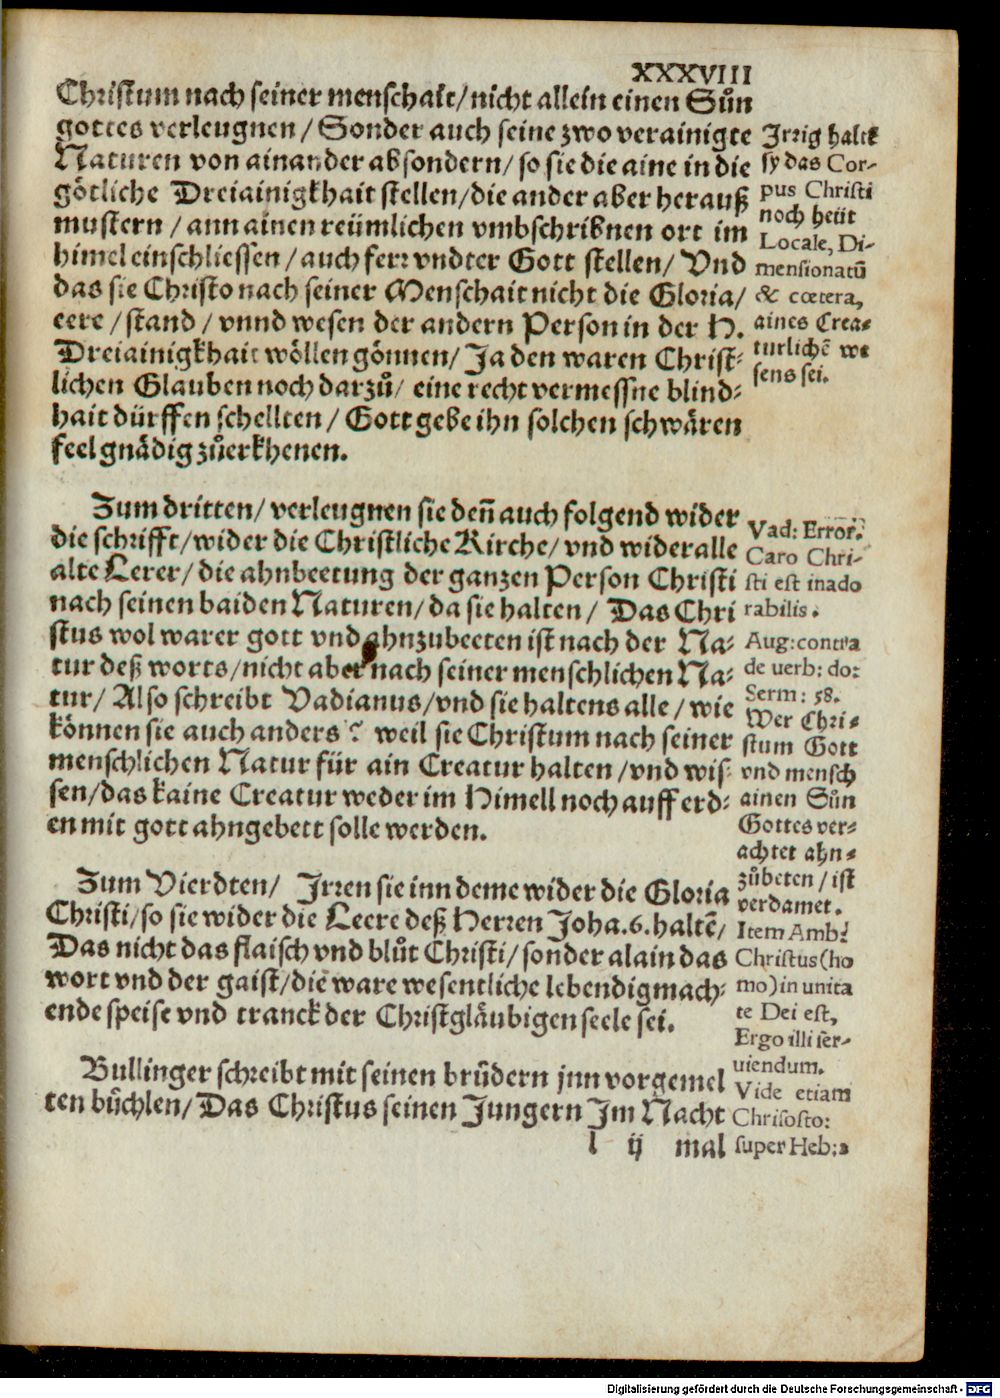 XXXVIII
Christum nach seiner menschait/ nicht allein einen Sůn
gottes verleugnen/ Sonder auch seine zwo verainigte
Naturen von ainander absondern/ so sie die aine in die
götliche Dreiainigkhait stellen/ die ander aber herauß
mustern/ ann ainen reümlichen vmbschribnen ort im
himel einschliessen/ auch ferr vndter Gott stellen/ Vnd
das sie Christo nach seiner Menschait nicht die Gloria/
eere/ stand/ vnnd wesen der andern Person in der H.
Dreiainigkhait wöllen gönnen/ Ja den waren Christ-
lichen Glauben noch darzů/ eine recht vermessne blind-
hait dürffen schellten/ Gott gebe ihn solchen schwären
feel gnädig zůerkhenen.
Irrig halt
sy das Cor-
pus Christi
noch heüt
Locale, Di-
mensionatū
& cœtera,
aines Crea-
türlichē we
sens sei.
Zum dritten/ verleugnen sie deñ auch folgend wider
die schrifft/ wider die Christliche Kirche/ vnd wider alle
alte Lerer/ die ahnbeetung der ganzen Person Christi
nach seinen baiden Naturen/ da sie halten/ Das Chri
stus wol warer gott vnd ahnzubeeten ist nach der Na-
tur deß worts/ nicht aber nach seiner menschlichen Na-
tur/ Also schreibt Vadianus/ vnd sie haltens alle/ wie
können sie auch anders? weil sie Christum nach seiner
menschlichen Natur für ain Creatur halten/ vnd wis-
sen/ das kaine Creatur weder im Himell noch auff erd-
en mit gott ahngebett solle werden.
Zum Vierdten/ Irren sie inn deme wider die Gloria
Christi/ so sie wider die Leere deß Herren Joha. 6. haltē/
Das nicht das flaisch vnd blůt Christi/ sonder alain das
wort vnd der gaist/ die ware wesentliche lebendigmach-
ende speise vnd tranck der Christgläubigen seele sei.
Bullinger schreibt mit seinen brüdern jnn vorgemel
ten büchlen/ Das Christus seinen Jungern Im Nacht
Vad: Error.
Caro Chri-
sti est inado
rabilis.
Aug: contra
de verb: do:
Serm: 58.
Wer Chri-
stum Gott
vnd mensch
ainen Sůn
Gottes ver-
achtet ahn-
zůbeten/ ist
verdamet.
Item Amb:
Christus (ho
mo) in unita
te Dei est,
Ergo illi ser-
uiendum.
Vide etiam
Chrisosto:
super Heb:
l ij mal
Digitalisierung gefördert durch die Deutsche Forschungsgemeinschaft - DFG